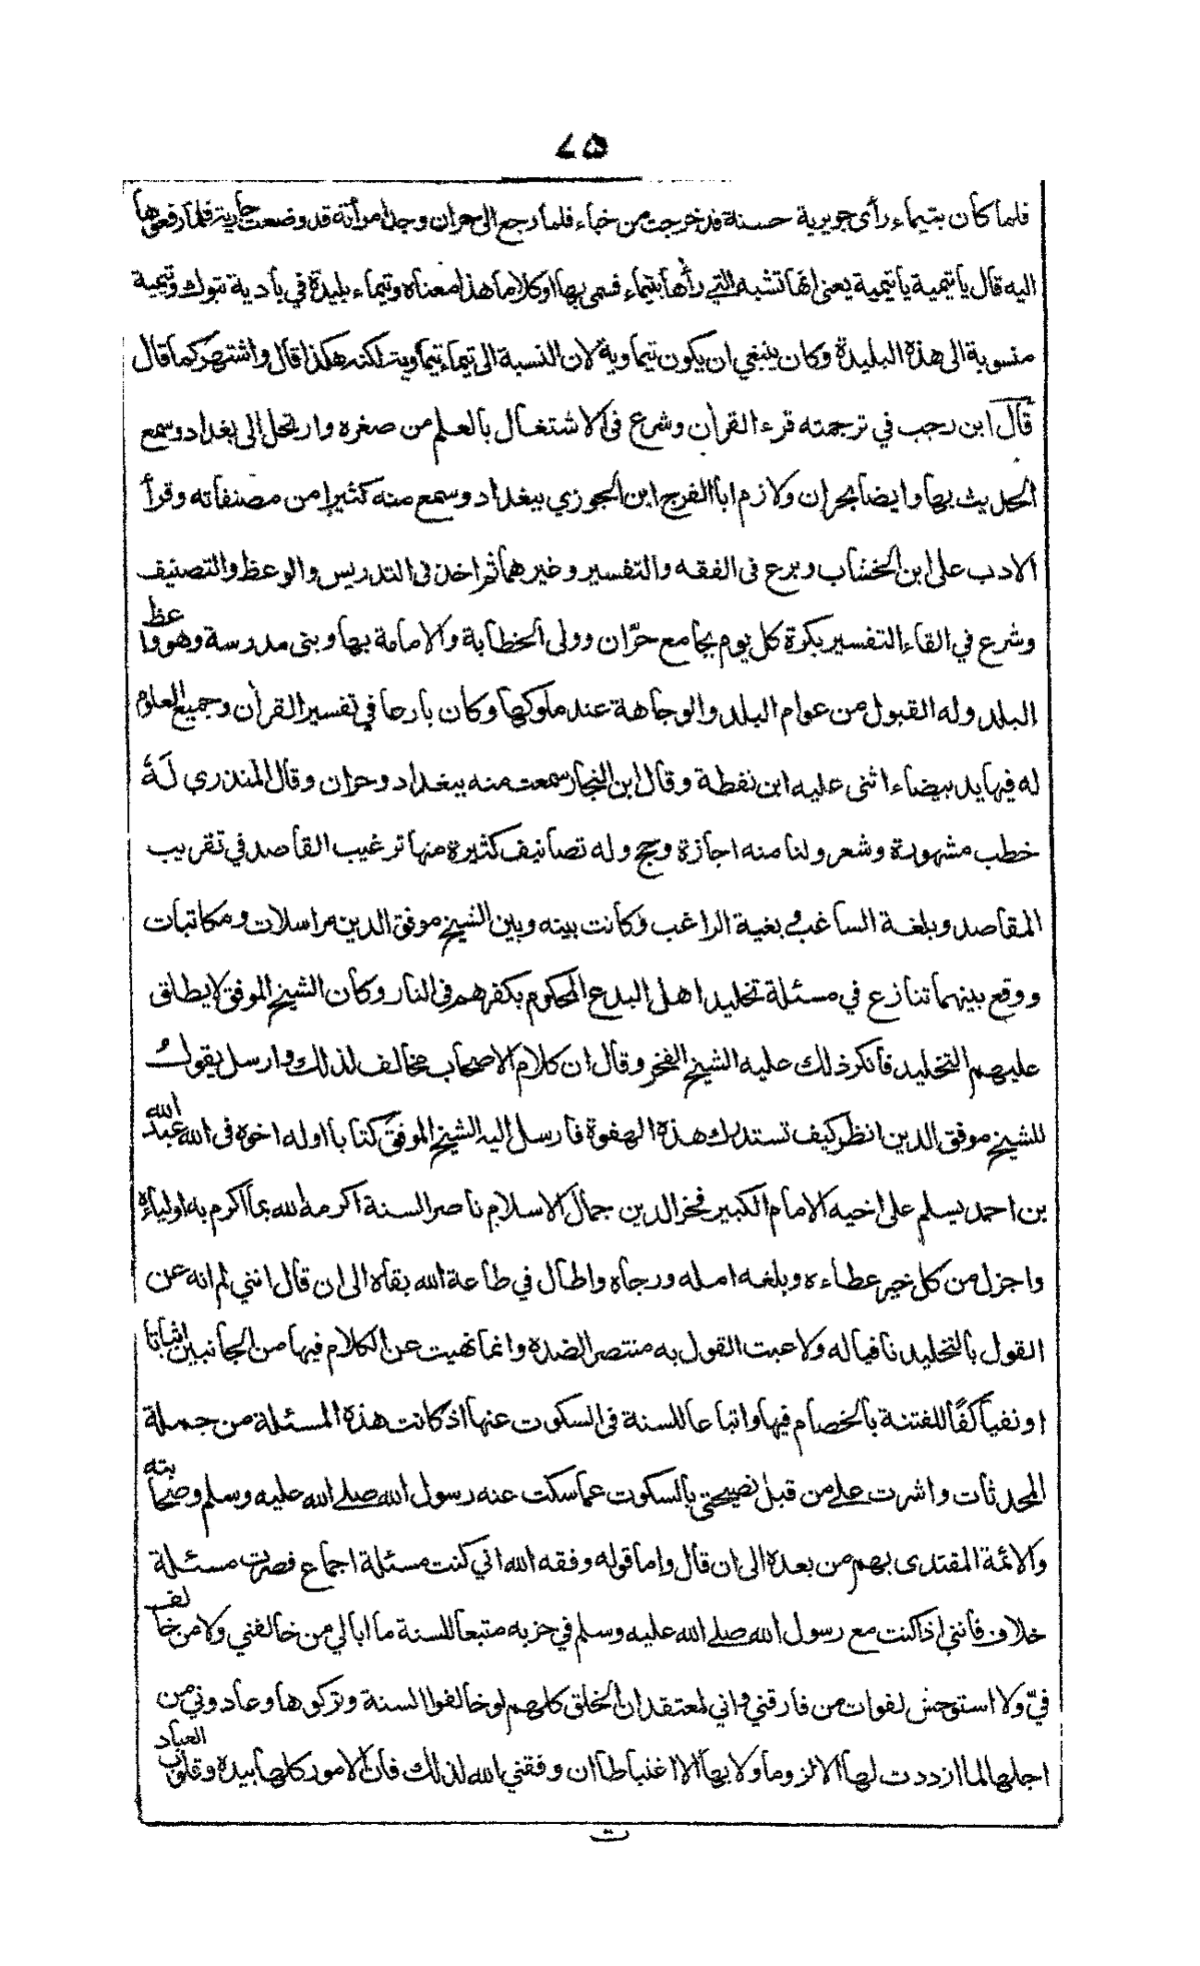 ٧٥
فلما كان بتيماء رأى جويرية حسنة قد خرجت من خباء فلما رجع الى حران وجد امرأته قد وضعت جارية فلما رفعوها
اليه قال يا تيمية يا تيمية يعنى انها تشبه التي رأها بتيماء فسمى بها او كلاما هذا معناه وتيماء بليدة في بادية تبوك وتيمية
منسوبة الى هذه البليدة وكان ينبغي ان يكون تيماوية لان النسبة الى تيماء تيماوية لكنه هكذا قال واشتهر كما قال
قال ابن رجب في ترجمته قرء القرأن وشرع فى الاشتغال بالعلم من صغره وارتحل الى بغداد وسمع
الحديث بها وايضا بحران ولازم ابا الفرج ابن الجوزي ببغداد وسمع منه كثيرا من مصنفاته وقرأ
الادب على ابن الخشاب وبرع فى الفقه والتفسير وغيرهما ثم اخذ فى التدريس والوعظ والتصنيف
وشرع في القاء التفسير بكرة كل يوم بجامع حرّان وولى الخطابة والامامة بها وبنى مدرسة وهو واعظ
البلد وله القبول من عوام البلد والوجاهة عند ملوكها وكان بارعا في تفسير القرأن وجميع العلوم
له فيها يد بيضاء اثنى عليه ابن نقطة وقال ابن النجار سمعت منه ببغداد وحران وقال المنذرى لَهُ
خطب مشهورة وشعر ولنا منه اجازة وحج وله تصانيف كثيرة منها ترغيب القاصد في تقريب
المقاصد وبلغة الساغب وبغية الراغب وكانت بينه وبين الشيخ موفق الدين مراسلات ومكاتبات
ووقع بينهما تنازع في مسئلة تخليد اهل البدع المحكوم بكفرهم فى النار وكان الشيخ الموفق لا يطلق
عليهم التخليد فانكر ذلك عليه الشيخ الفخر وقال ان كلام الاصحاب مخالف لذلك وارسل يقولُ
للشيخ موفق الدين انظر كيف تستدرك هذه الهفوة فارسل اليه الشيخ الموفق كتابا اوله اخوه فى الله عبد الله
بن احمد يسلم على اخيه الامام الكبير فخر الدين جمال الاسلام ناصر السنة اكرمه الله بما اكرم به اولياءه
واجزل من كل خير عطاءه وبلغه امله ورجاه واطال في طاعة الله بقاه الى ان قال انني لم انه عن
القول بالتخليد نافيا له ولا عبت القول به منتصرا لضده وانما نهيت عن الكلام فيها من الجانبين اثباتا
او نفيا كفًا للفتنة بالخصام فيها واتباعا للسنة فى السكوت عنها اذ كانت هذه المسئلة من جملة
المحدثات واشرت على من قبل نصيحتى بالسكوت عما سكت عنه رسول الله صلى الله عليه وسلم وصحابته
والائمة المقتدى بهم من بعده الى ان قال واما قوله وفقه الله اني كنت مسئلة اجماع فصرت مسئلة
خلاف فانني اذا كنت مع رسول الله صلى الله عليه وسلم في حزبه متبعا للسنة ما ابالي من خالفني ولا من خالف
فيّ ولا استوحش لفوات من فارقني واني لمعتقد ان الخلق كلهم لو خالفوا السنة وتركوها وعادوني من
اجلها لما ازددت لها الا لزوما ولا بها الا اغتباطا ان وفقني الله لذلك فان الامور كلها بيده وقلوب العباد
ت